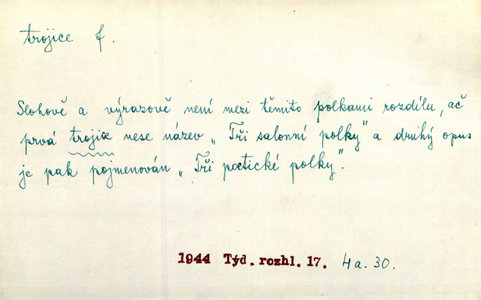 trojice f.
Slohově a výrazově není mezi těmito polkami rozdílu, ač
prvá trojice nese název „Tři salonní polky" a druhý opus
je pak pojmenován „Tři poetické polky".
1944 Týd. rozhl. 17. 4a. 30.